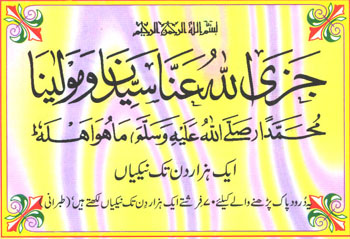 بسم الله الرحمن الرحيم
جَزَى اللهُ عَنَّا سَيِّدَنَا وَمَوْلَيْنَا
مُحَمَّدًا صَلَّى اللهُ عَلَيْهِ وَسَلَّمَ مَا هُوَ اَهْلُهٗ ط
ایک ہزار دن تک نیکیاں
یہ دُرود پاک پڑھنے والے کیلئے ۷۰ فرشتے ایک ہزار دن تک نیکیاں لکھتے ہیں ٗ (طبرانی)